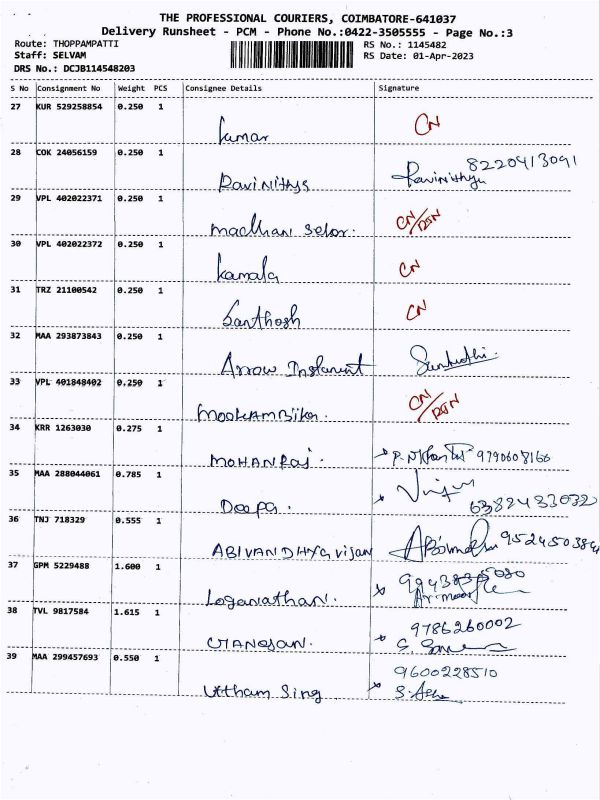 THE PROFESSIONAL COURIERS, COIMBATORE-641037
Delivery Runsheet - PCM - Phone No.:0422-3505555 - Page No.:3
Route: THOPPAMPATTI RS No.: 1145482
Staff: SELVAM RS Date: 01-Apr-2023
DRS No.: DCJB114548203
S No Consignment No Weight PCS Consignee Details Signature
27 KUR 529258854 0.250 1
kumar CN
28 COK 24056159 0.250 1
8220413091
Ravinithys Ravinithya
29 VPL 402022371 0.250 1
madhan Selor. CN/RTN
30 VPL 402022372 0.250 1
kamala CN
31 TRZ 21100542 0.250 1
Santhosh CN
32 MAA 293873843 0.250 1
Arrow
33 VPL 401848402 0.250 1
CN/RTN
34 KRR 1263030 0.275 1
MOHANRAJ. 9790608166
35 MAA 288044061 0.785 1
Deepa. 6382433032
36 TNJ 718329 0.555 1
ABIVANDHYA vijan
37 GPM 5229488 1.600 1
Loganathan.
38 TVL 9817584 1.615 1
9786260002
GANESAN.
39 MAA 299457693 0.550 1
9600228510
Uttham Sing